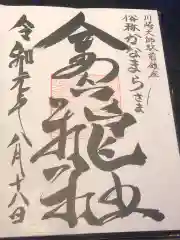 川崎大師駅前鎮座
俗称かなまらさま
金山神社
令和元年八月十八日